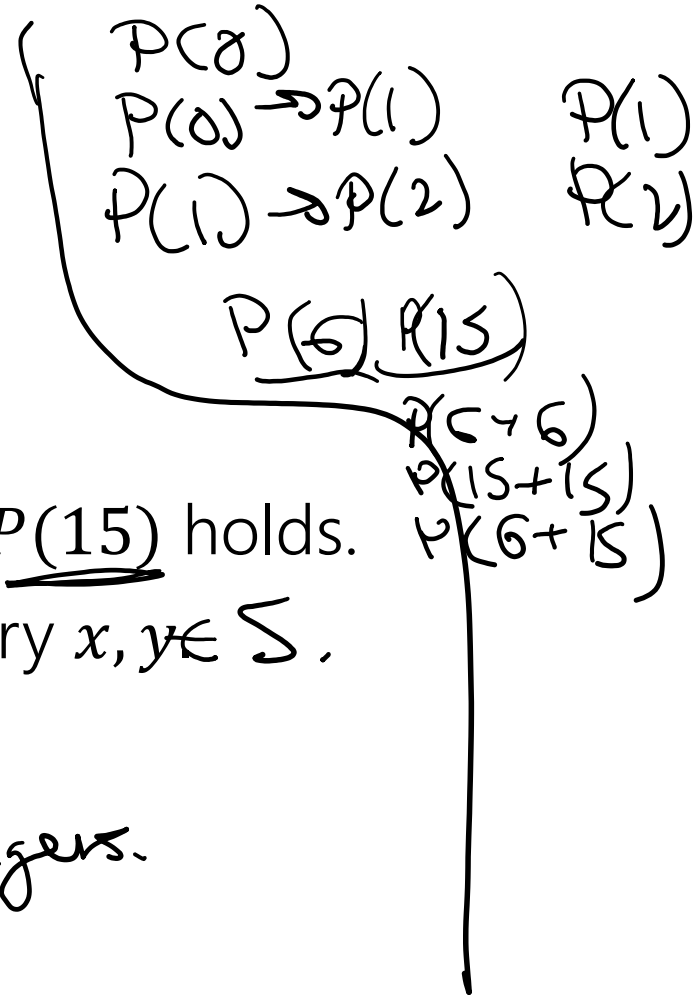 P(0)
P(0) → P(1) P(1)
P(1) → P(2) P(2)
P(6) P(15)
P(6+6)
P(15+15)
P(15) holds.
P(6+15)
ry x, y ∈ S.
gers.